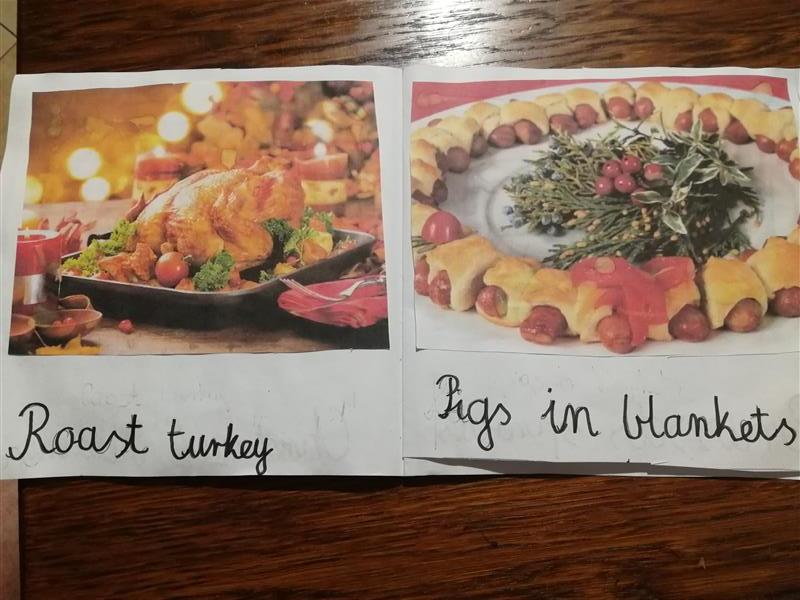 Roast turkey
Pigs in blankets